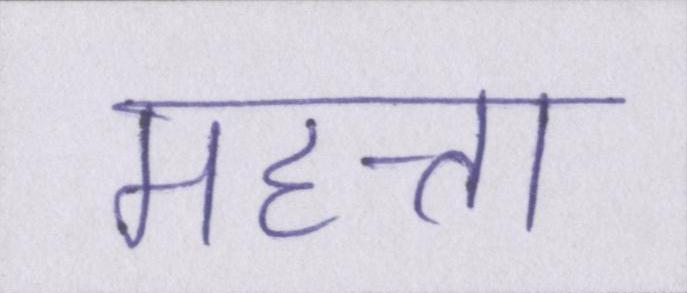 महत्ता